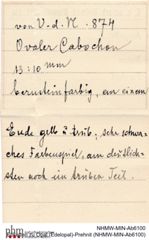 von V.d.N. 874
Ovaler Cabochon
13:10 mm
bernsteinfarbig, an einem
Ende gelb u. trüb; sehr schwa-
ches Farbenspiel, am deutlich-
sten noch im trüben Teil.
nhm
NHMW-MIN-Ab6100
(Edelopal)-Prehnit (NHMW-MIN-Ab6100)